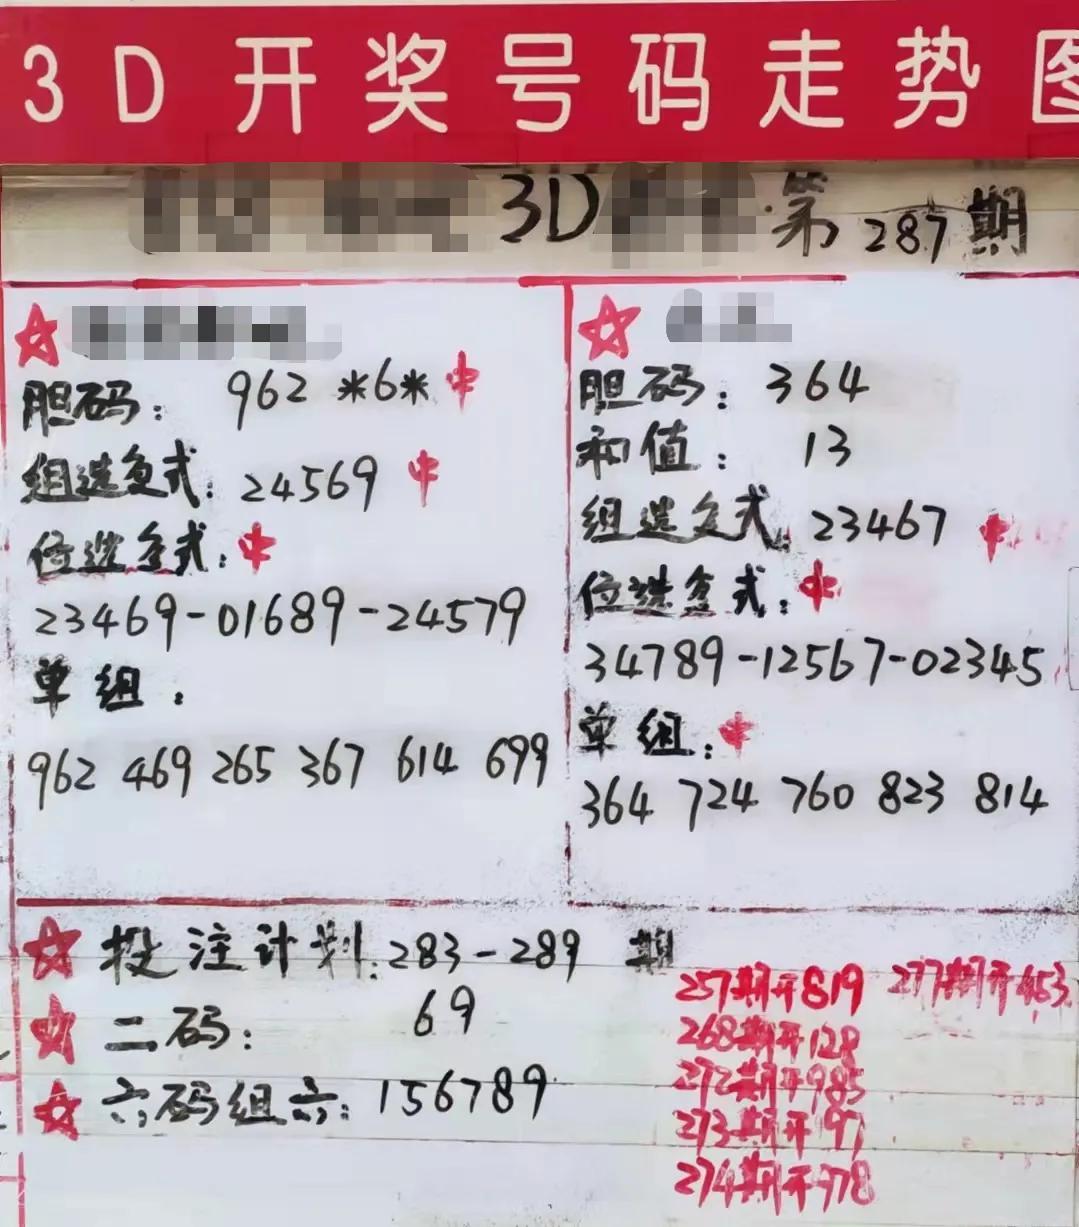 3D开奖号码走势图
3D 第287期
胆码：962 *6* 中
组选复式：24569 中
位选复式：中
23469-01689-24579
单组：
962 469 265 367 614 699
胆码：364
和值：13
组选复式：23467 中
位选复式：中
34789-12567-02345
单组：中
364 724 760 823 814
投注计划：283-289 期
二码：69
六码组六：156789
257期开819 277期开453
268期开128
272期开985
273期开
274期开778